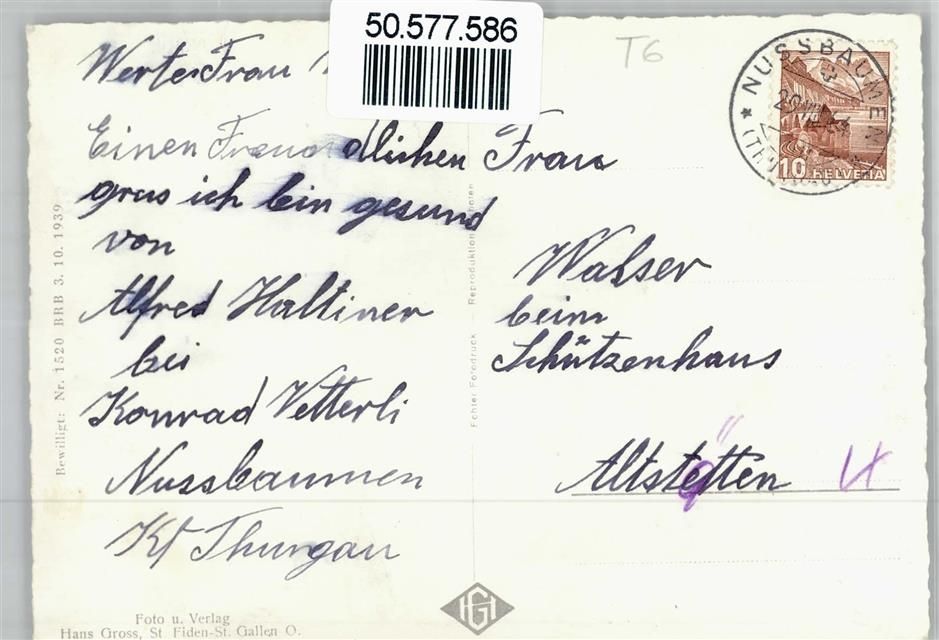 50.577.586
T6
Werte Frau
Einen Freundlichen
grus ich bin gesund
von
Alfred Haltiner
bei
Konrad Vetterli
Nussbaumen
Kt Thurgau
Frau
Walser
beim
Schützenhaus
Altstetten
NUSSBAUMEN
10 HELVETIA
Bewilligt: Nr. 1520 BRB 3. 10. 1939
Echter Fotodruck — Reproduktion verboten
HG
Foto u. Verlag
Hans Gross, St. Fiden-St. Gallen O.